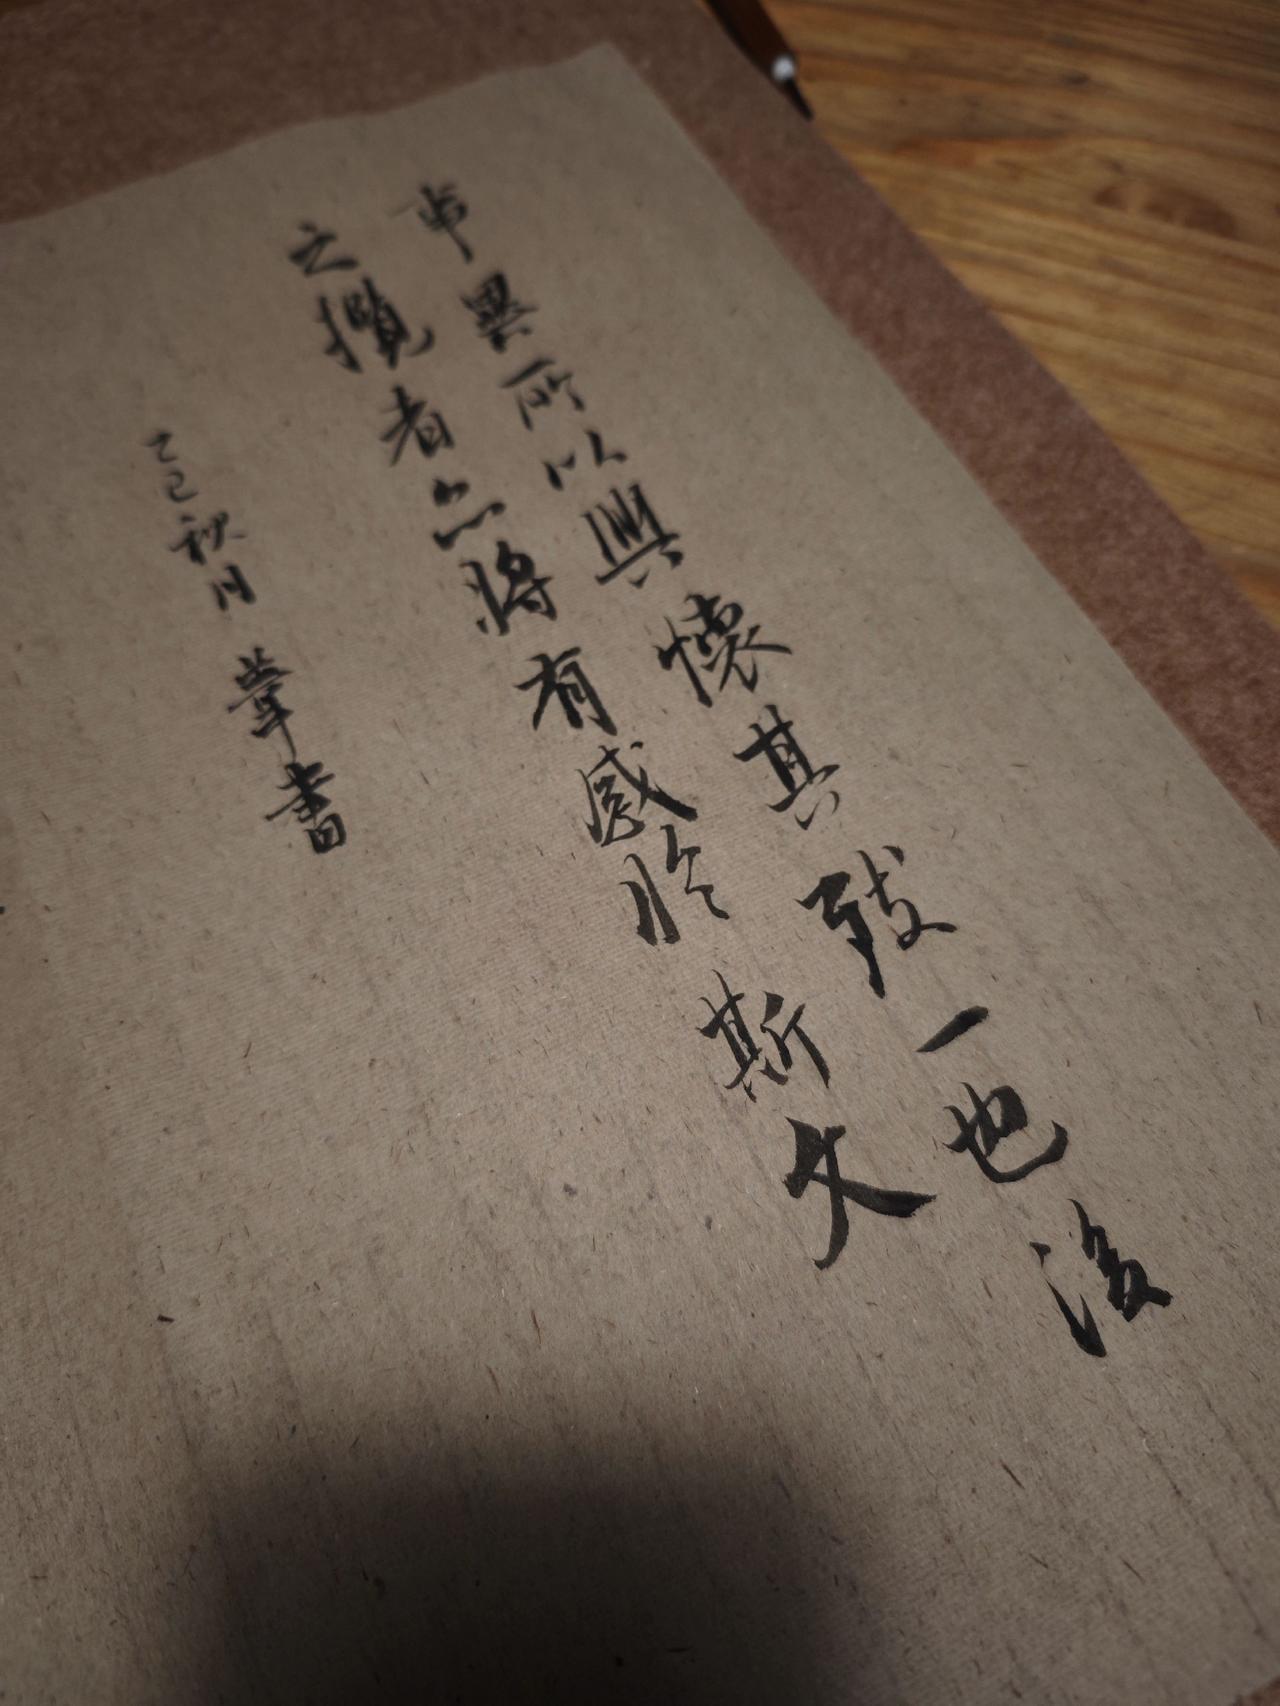 事異所以興懷其致一也後
之攬者亦將有感於斯文
乙巳秋月 葦書